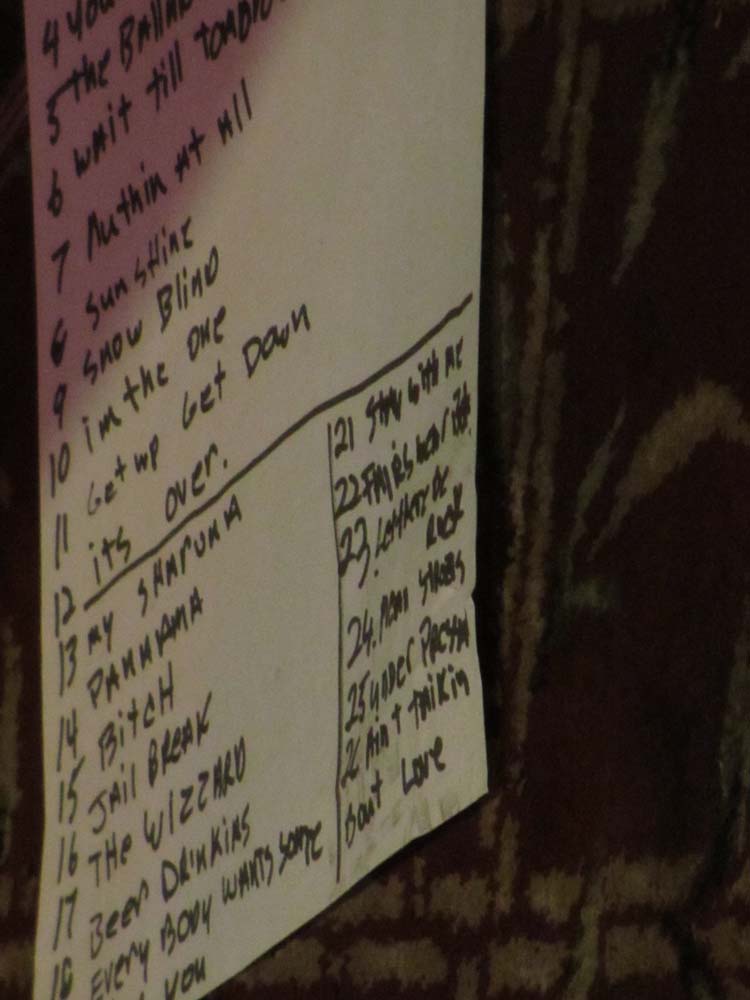 4 you
5 the
6 wait till
7 Nuthin At All
8 sunshine
9 snow Blind
10 im the one
11 Get up Get Down
12 its over.
13 My SHARUNA
14 PANNAMA
15 BitCH
16 JAil BREAK
17 THe WIZZARD
18 Beer DRinKins
EVery BODY WANTS SOME
you
21 Stay with me
22
23.
Rock
24.
25 under
26 Ain't talkin
bout Love